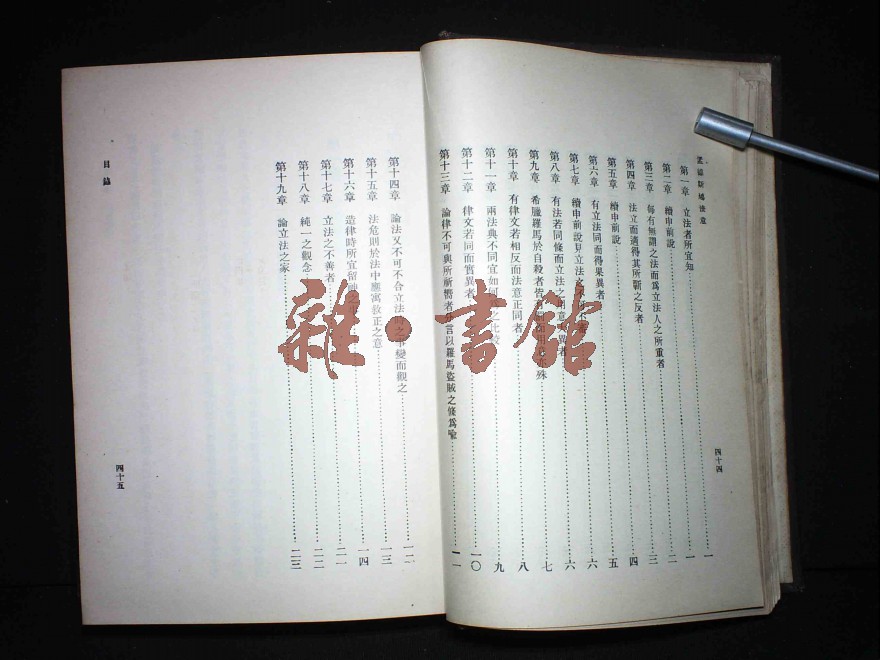 孟德斯鳩法意
第一章 立法者所宜知 一
第二章 續申前說 二
第三章 每有無謂之法而為立法人之所重者 三
第四章 法立而適得其所蘄之反者 四
第五章 續申前說 五
第六章 有立法同而得果異者 六
第七章 續申前說見立法 六
第八章 有法若同條而立法之用意異者 七
第九章 希臘羅馬於自殺者皆 殊 七
第十章 有律文若相反而法意正同者 八
第十一章 兩法典不同宜如何 之比較 九
第十二章 律文若同而實異者 一〇
第十三章 論律不可與所祈嚮者 言以羅馬盜賊之條為喩 一一
四十四
第十四章 論法又不可不合立法時之事變而觀之 一二
第十五章 法危則於法中應寓救正之意 一三
第十六章 造律時所宜留神之事 一四
第十七章 立法之不善者 二一
第十八章 純一之觀念 二二
第十九章 論立法之家 二三
目錄
四十五
雜·書館